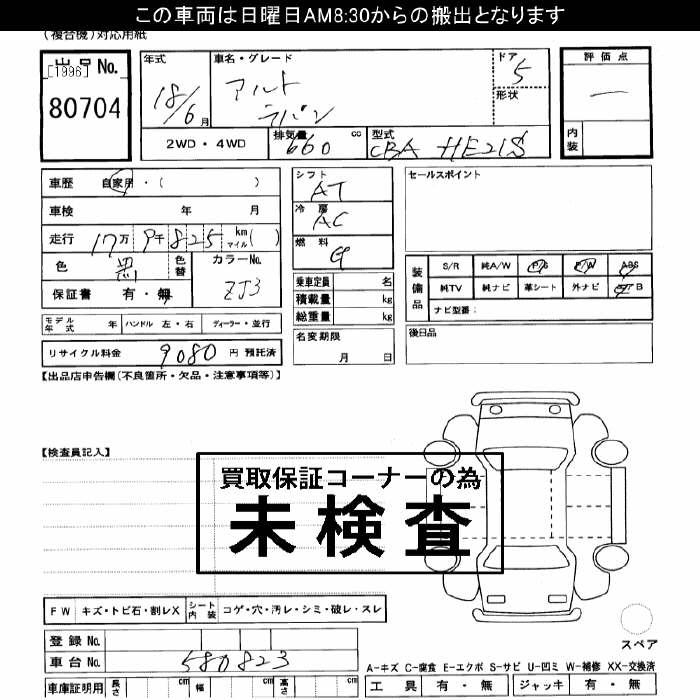 この車両は日曜日AM8:30からの搬出となります
(複合機)対応用紙
出品No.
[1996]
80704
年式
18/6月
車名・グレード
アルト
ラパン
ドア
5
形状
評価点
一
内装
2WD・4WD
排気量
660
cc
型式
CBA HE21S
車歴 自家用・( )
車検 年 月
走行 17万9千825 km マイル( )
色 黒 色替
カラーNo.
ZJ3
保証書 有・無
シフト
AT
冷房
AC
燃料
G
乗車定員 名
積載量 kg
総重量 kg
名変期限
月 日
セールスポイント
装備品
S/R 純A/W P/S P/W ABS
純TV 純ナビ 革シート 外ナビ B
ナビ型番:
後日品
モデル年式 年 ハンドル 左・右 ディーラー・並行
リサイクル料金 9080 円 預託済
【出品店申告欄(不良箇所・欠品・注意事項等)】
【検査員記入】
買取保証コーナーの為
未検査
FW キズ・トビ石・割レX シート内装 コゲ・穴・汚レ・シミ・破レ・スレ
登録No.
車台No. 580823
車庫証明用 長さ cm 幅 cm 高さ cm
スペア
A-キズ C-腐食 E-エクボ S-サビ U-凹ミ W-補修 XX-交換済
工具 有・無 ジャッキ 有・無